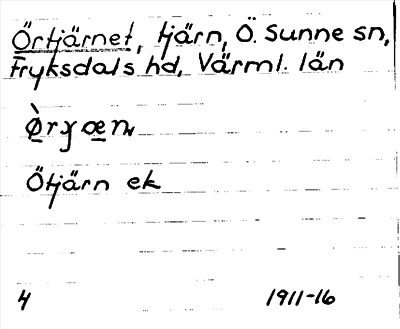 Örtjärnet, tjärn, Ö. Sunne sn,
Fryksdals hd, Värml. län
Ötjärn ek
4 1911-16